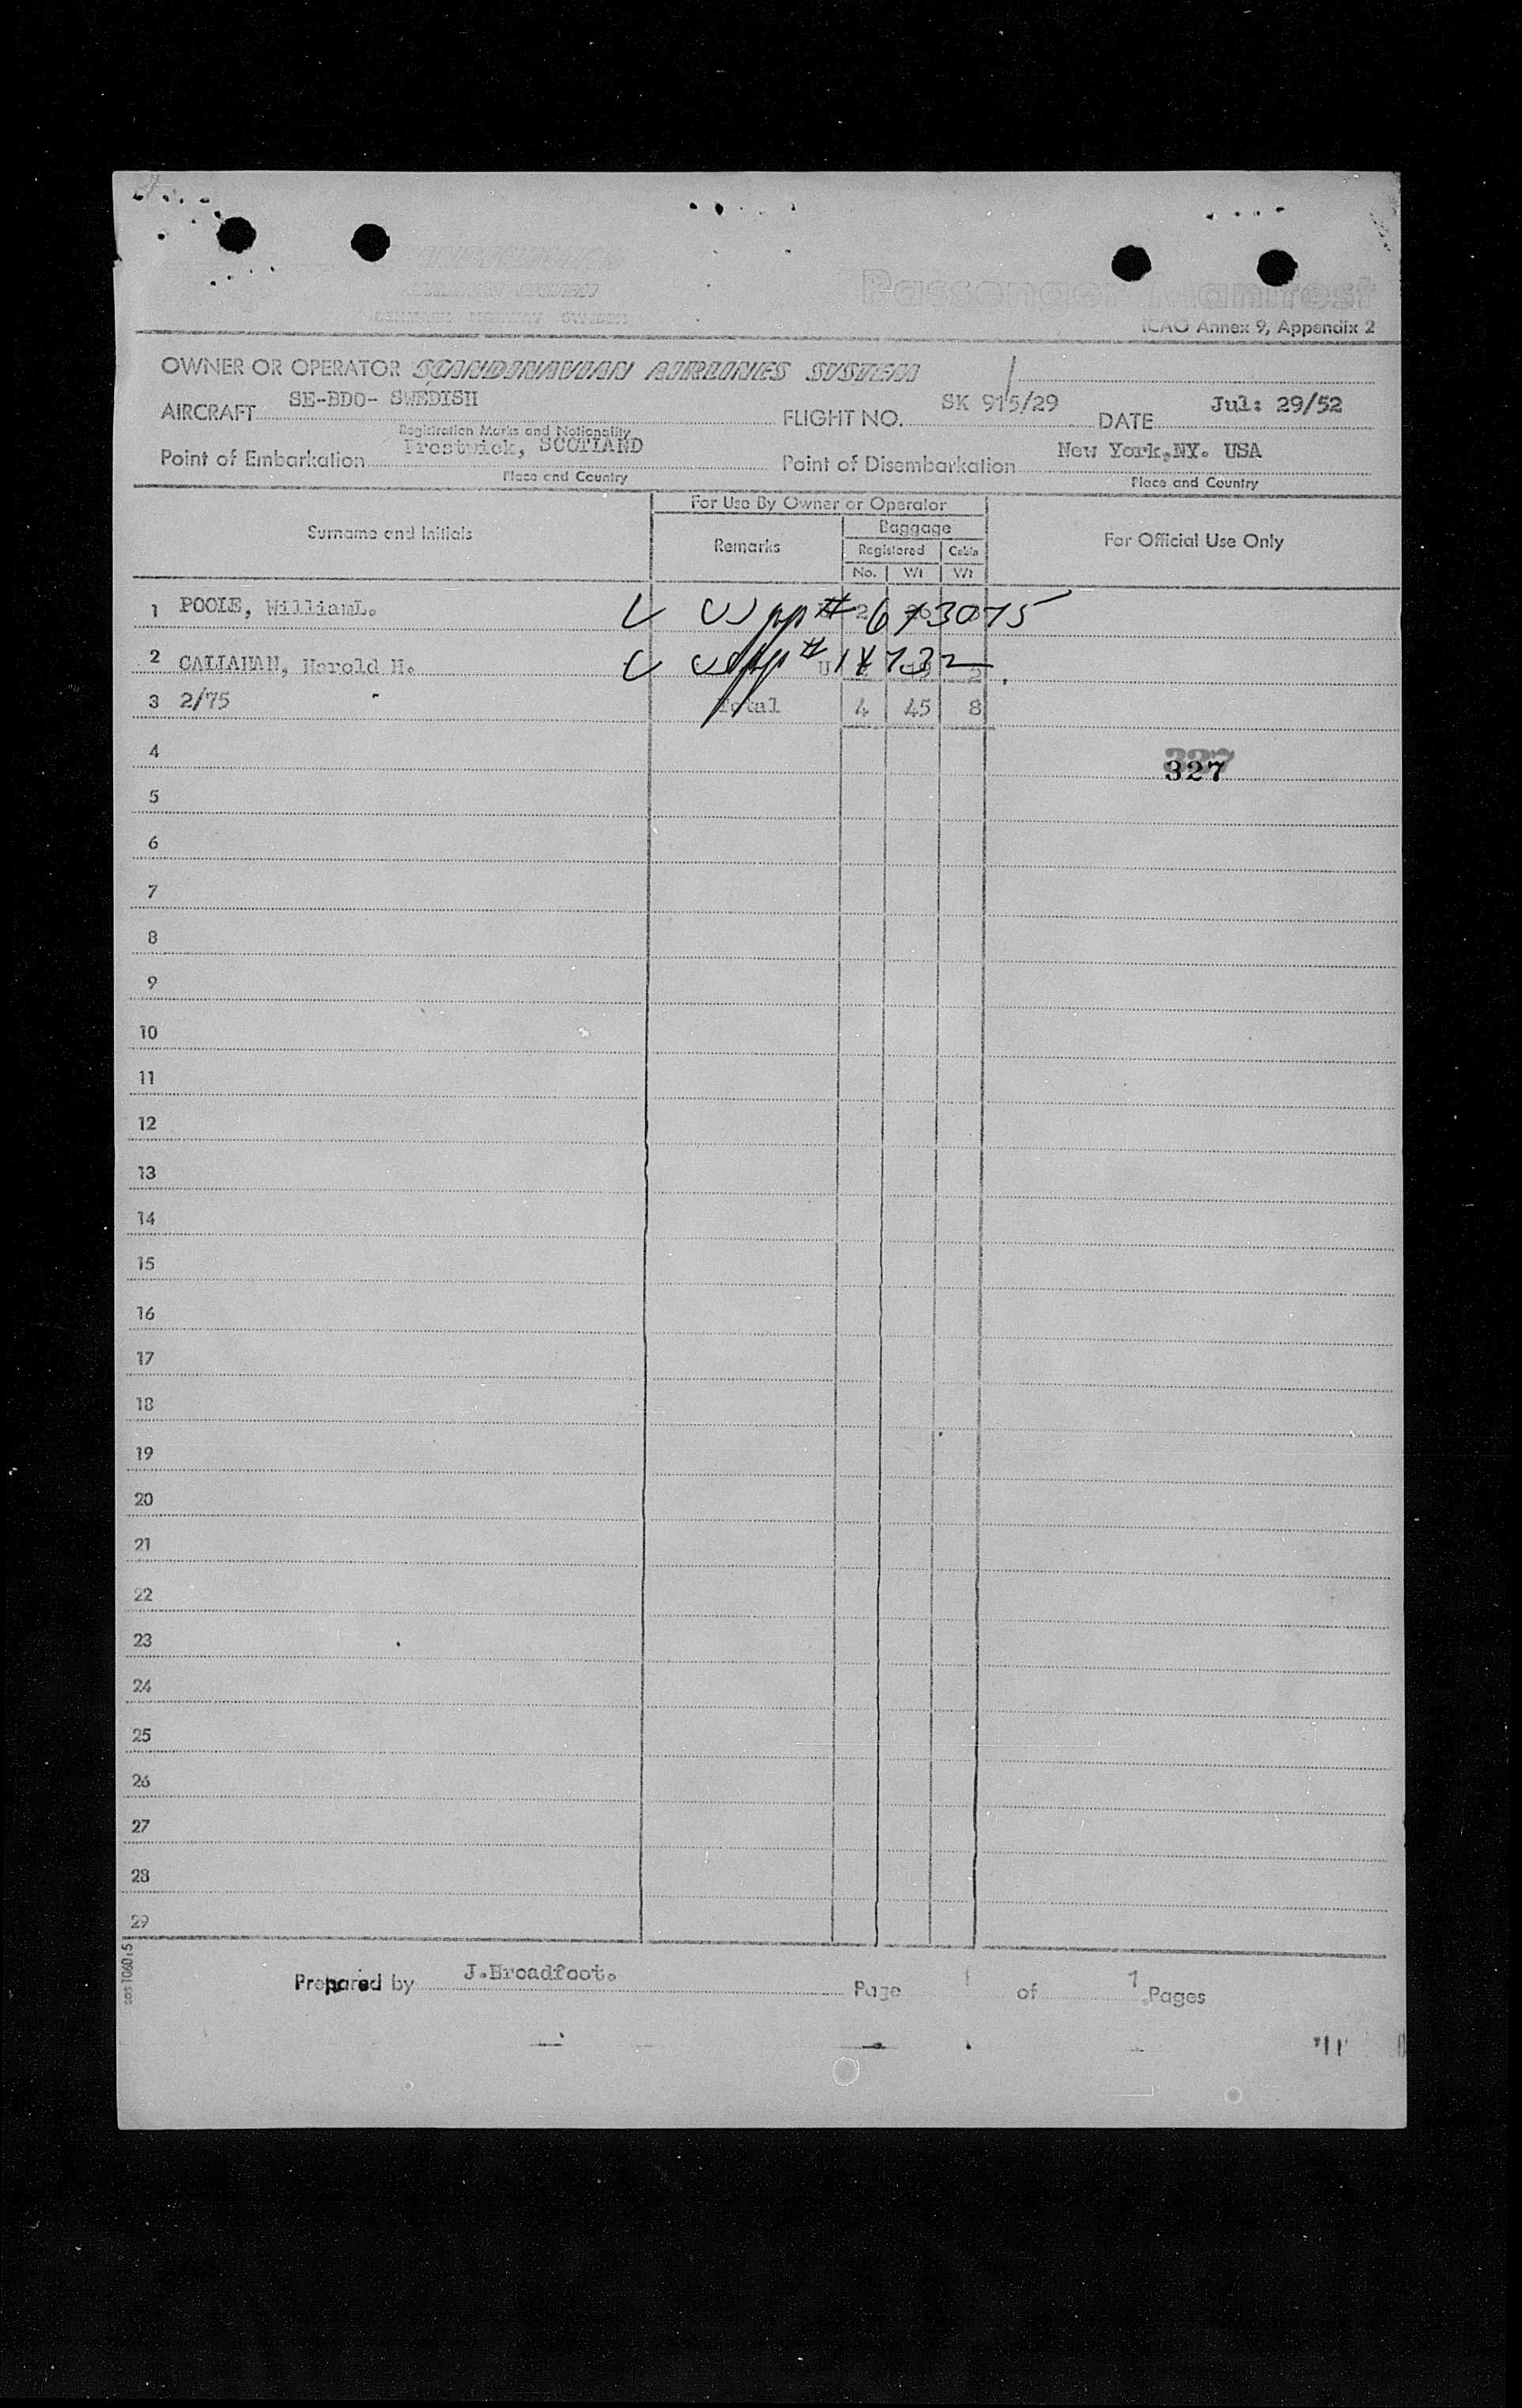 Passenger Manifest
ICAO Annex 9, Appendix 2
OWNER OR OPERATOR SCANDINAVIAN AIRLINES SYSTEM
AIRCRAFT SE-BDO- SWEDISH FLIGHT NO. SK 915/29 DATE Jul: 29/52
Registration Marks and Nationality
Point of Embarkation Prestwick, SCOTLAND Point of Disembarkation New York,NY. USA
Place and Country Place and Country
For Use By Owner or Operator
Surname and Initials Remarks Baggage For Official Use Only
Registered Cabin
No. Wt Wt
1 POOLE, WilliamL.
2 CALLAHAN, Harold H. U
3 2/75 Total 4 45 8
4 327
5
6
7
8
9
10
11
12
13
14
15
16
17
18
19
20
21
22
23
24
25
26
27
28
29
sas 1060:5
Prepared by J.Broadfoot. Page of 1 Pages